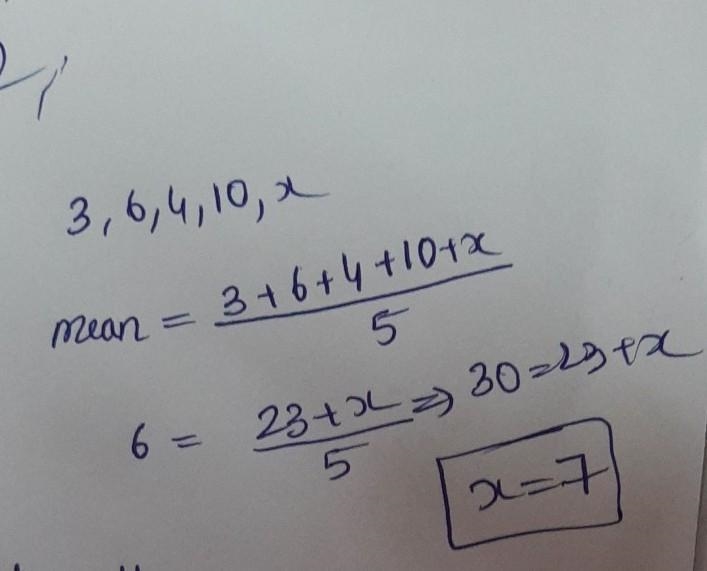 3, 6, 4, 10, x
mean = 3 + 6 + 4 + 10 + x / 5
6 = 23 + x / 5 => 30 = 23 + x
x = 7